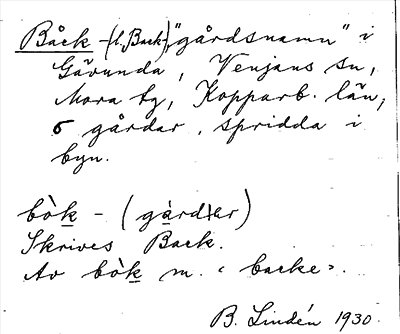 Båck - (l. Back-) "gårdsnamn" i
Gävunda, Venjans sn,
Mora tg, Kopparb. län,
6 gårdar, spridda i
byn.
bò̀k - (gàrdɩar)
Skrives Back.
Av bò̀k m. "backe".
B. Lindén 1930.